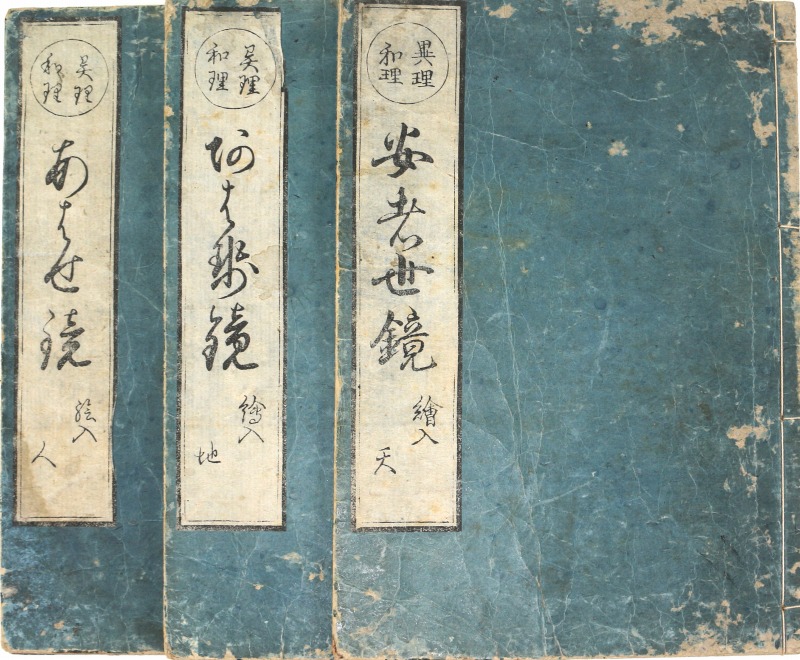 異理
和理
安者世鏡
繪入
天
異理
和理
阿は勢鏡
繪入
地
異理
和理
あはせ鏡
絵入
人